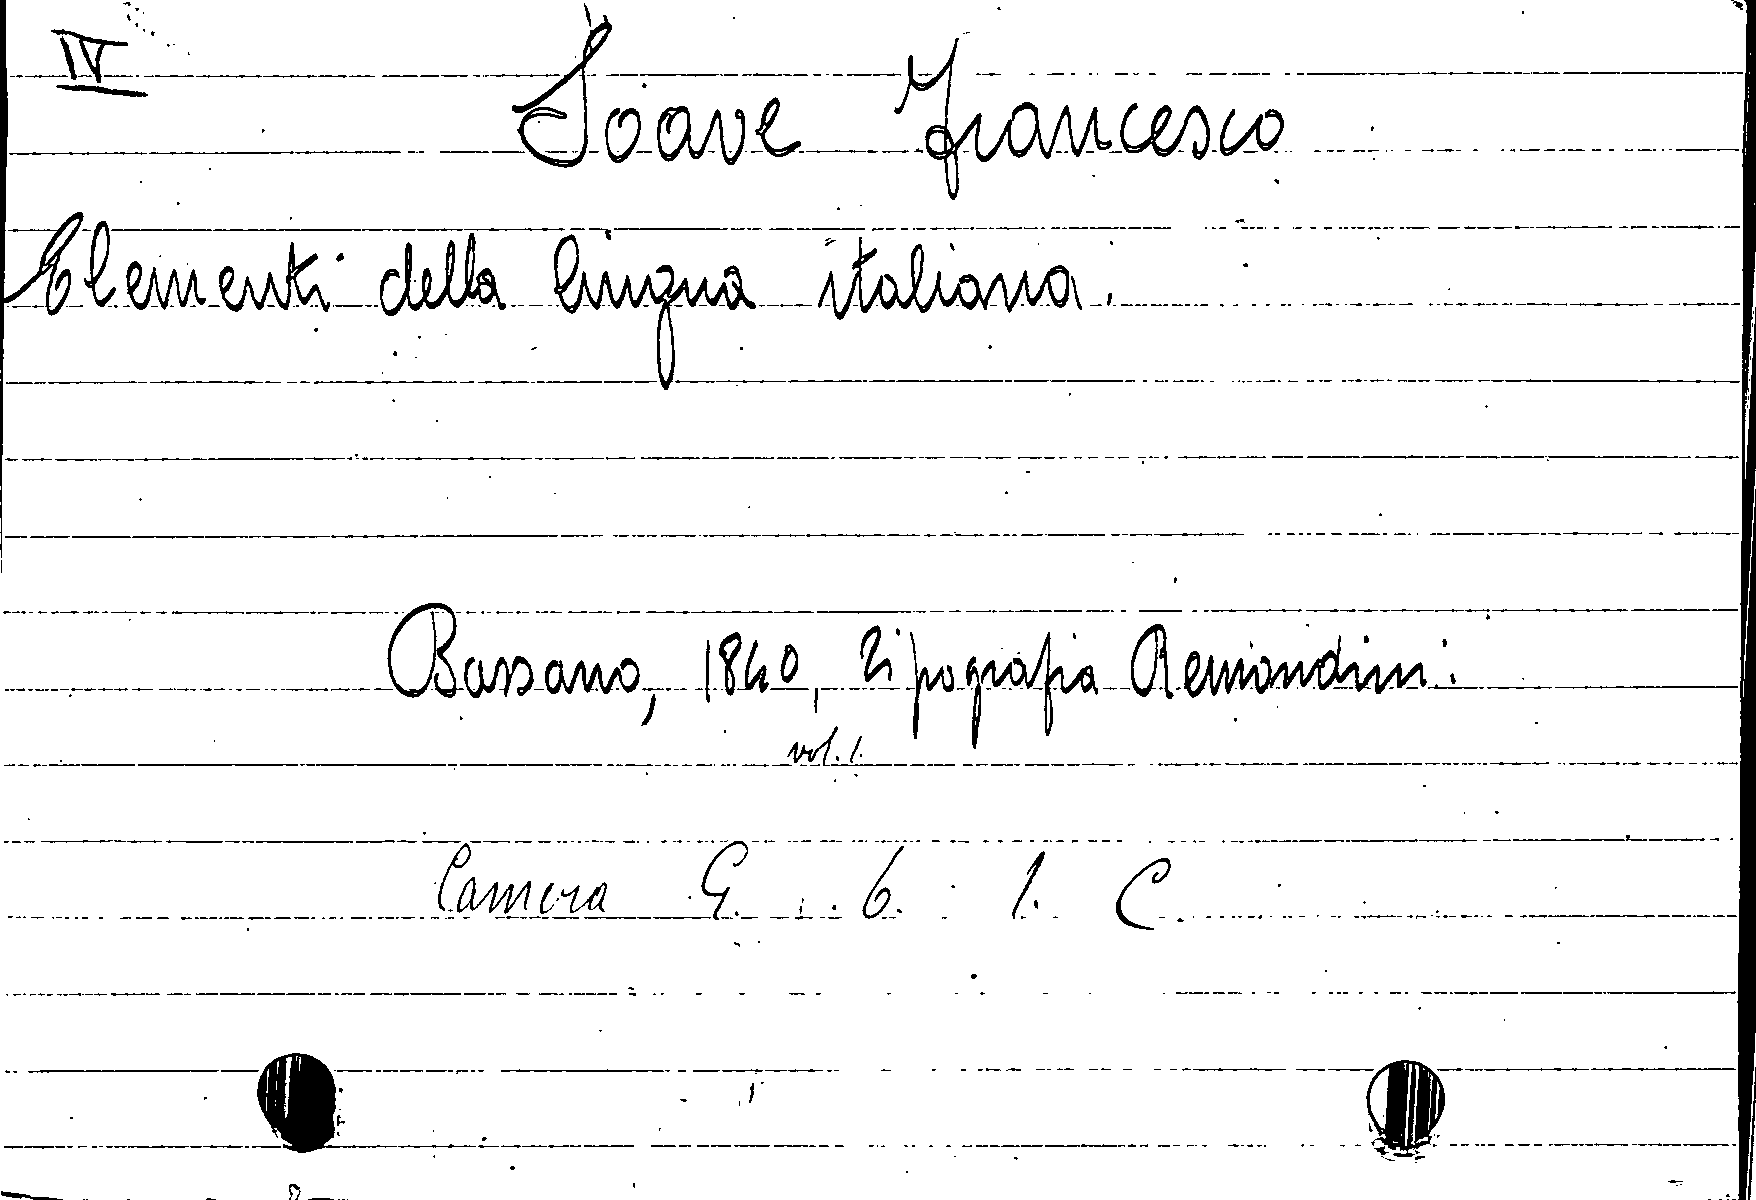 IV
Soave Francesco
Elementi della lingua italiana.
Bassano, 1840, Tipografia Remondini.
vol. 1.
Camera G. 6. 1. C.